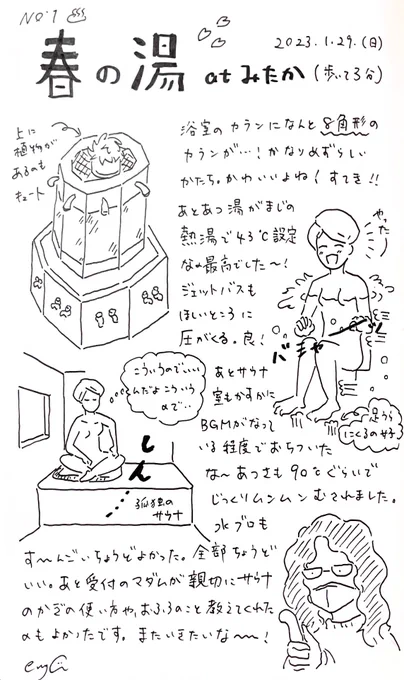 NO.1
春の湯 at みたか (歩いて3分)
2023.1.29.(日)
上に
植物が
あるのも
キュート
浴室のカランになんと8角形の
カランが…!かなりめずらしい
かたち。かわいいよね!すてき!!
あとあつ湯がまじの
熱湯で43℃設定
な〜最高でした〜!
ジェットバスも
ほしいところに
圧がくる。良!
やったー
バキャーッ
足うらに
こういうのでいい
んだよこういう
ので‥
しーん
孤独の
サウナ
あとサウナ
室もかすかに
BGMがなって
いる程度でおちついた
な〜あつさも90℃ぐらいで
じっくりムンムンむされました。
水ブロも
す〜んごいちょうどよかった。全部ちょうど
いい。あと受付のマダムが親切にサウナ
のかぎの使い方や、おふろのこと教えてくれた
のもよかったです。またいきたいな〜〜!